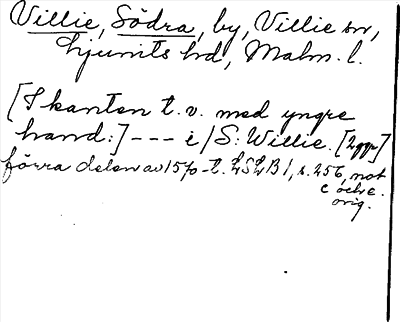 Villie, Södra, by, Villie sn,
Ljunits hd, Malm. l.
[I kanten t.v. med yngre
hand:] - - - i / S: Willie. [2ggr]
förra delen av 1570-t. LSLB 1, s. 256, not
c och e.
orig.